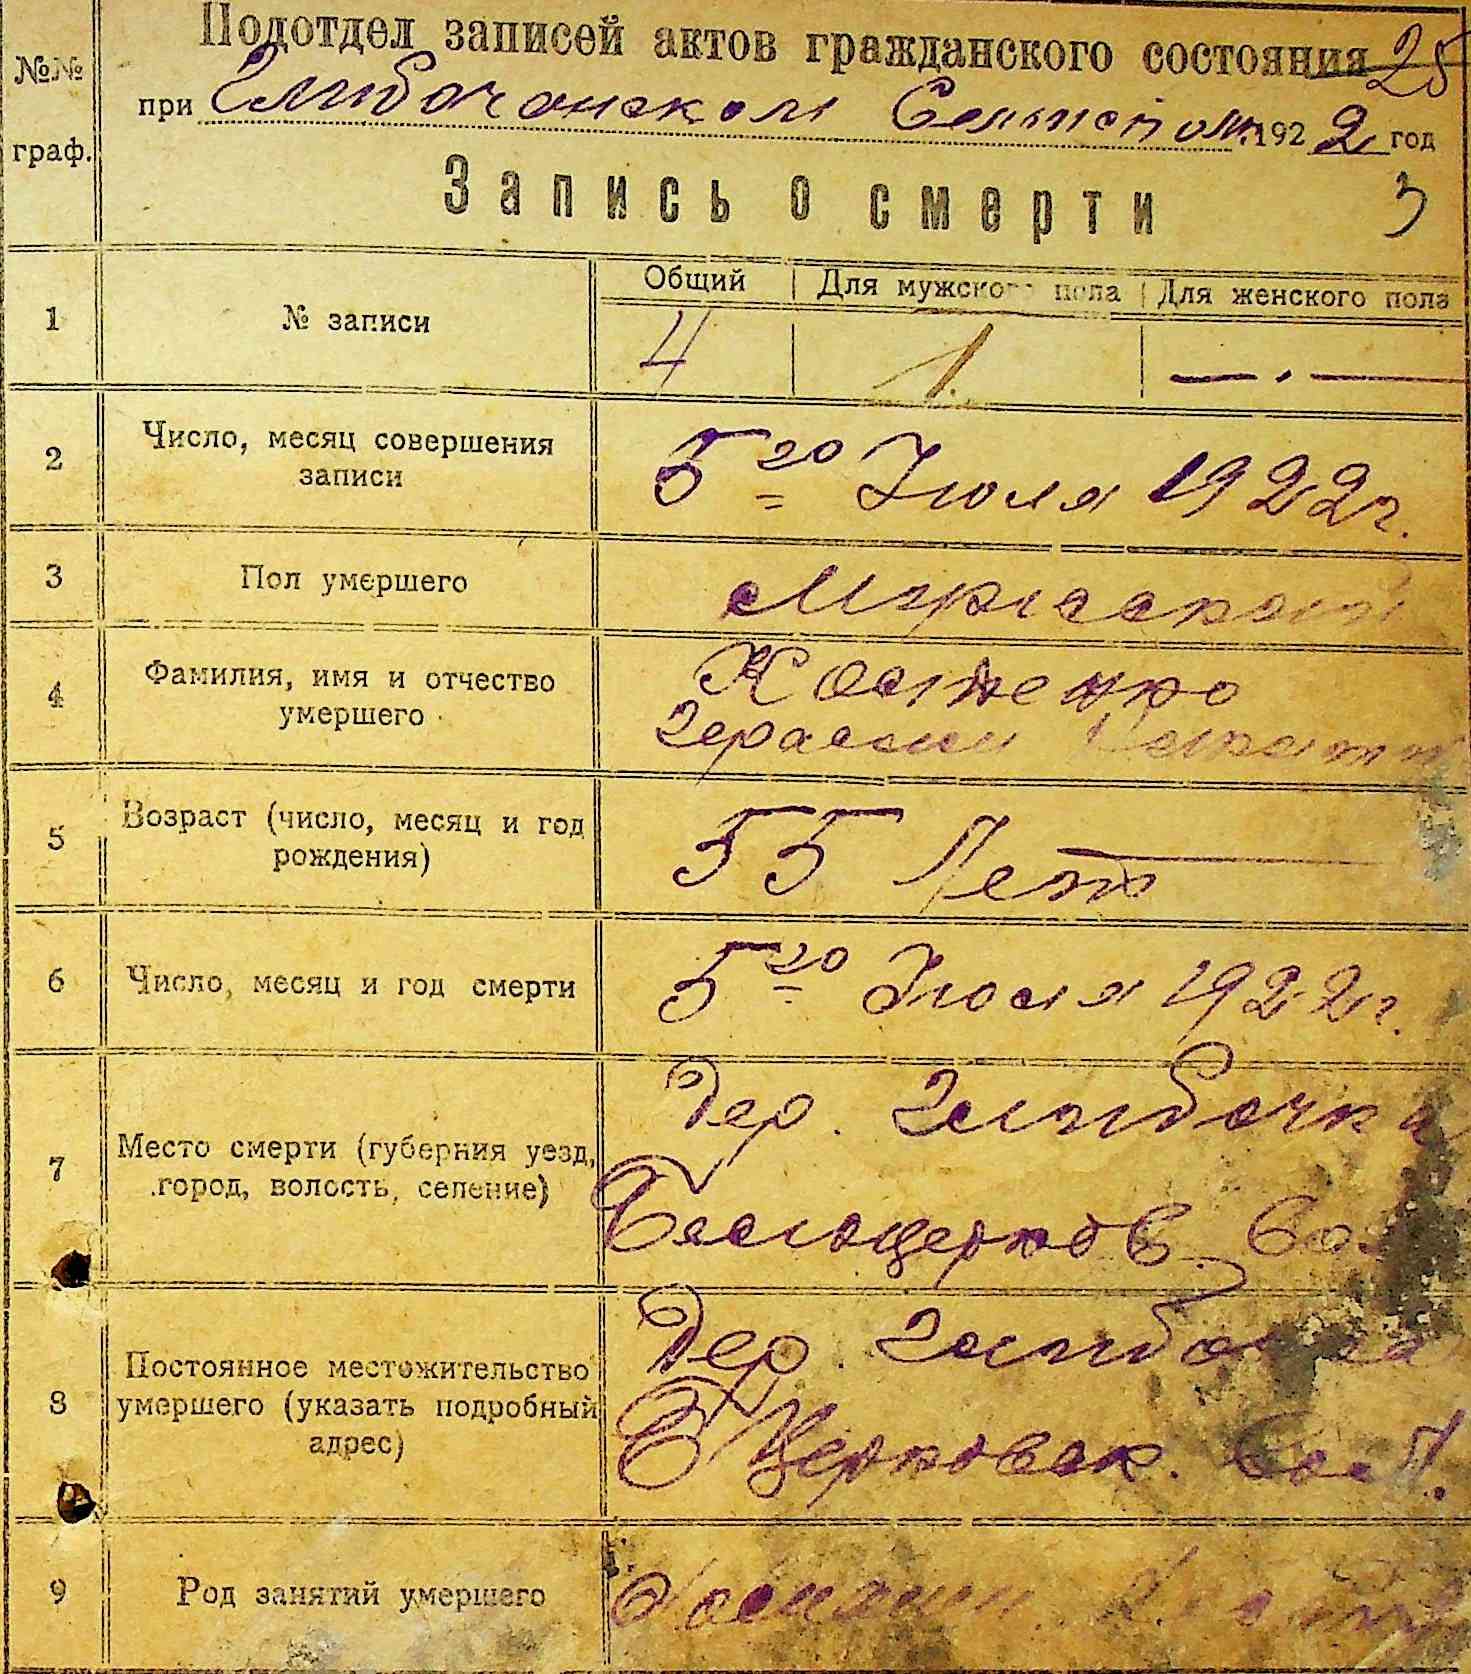 Подотдел записей актов гражданского состояния 25
№№ граф.
при Глибочанском 1922 год
Запись о смерти 3
Общий Для мужского пола Для женского пола
1 № записи 4 1. — . —
2 Число, месяц совершения
записи
5го Июля 1922 г.
3 Пол умершего Мужской
4 Фамилия, имя и отчество
умершего
Костенко
Герасим
5 Возраст (число, месяц и год
рождения)
55 Лет
6 Число, месяц и год смерти 5го Июля 1922 г.
7 Место смерти (губерния уезд,
город, волость, селение)
Дер. Глибочка
Белоцерков. вол
8 Постоянное местожительство
умершего (указать подробный
адрес)
Дер. Глибочка
Б Церковск. вол.
9 Род занятий умершего